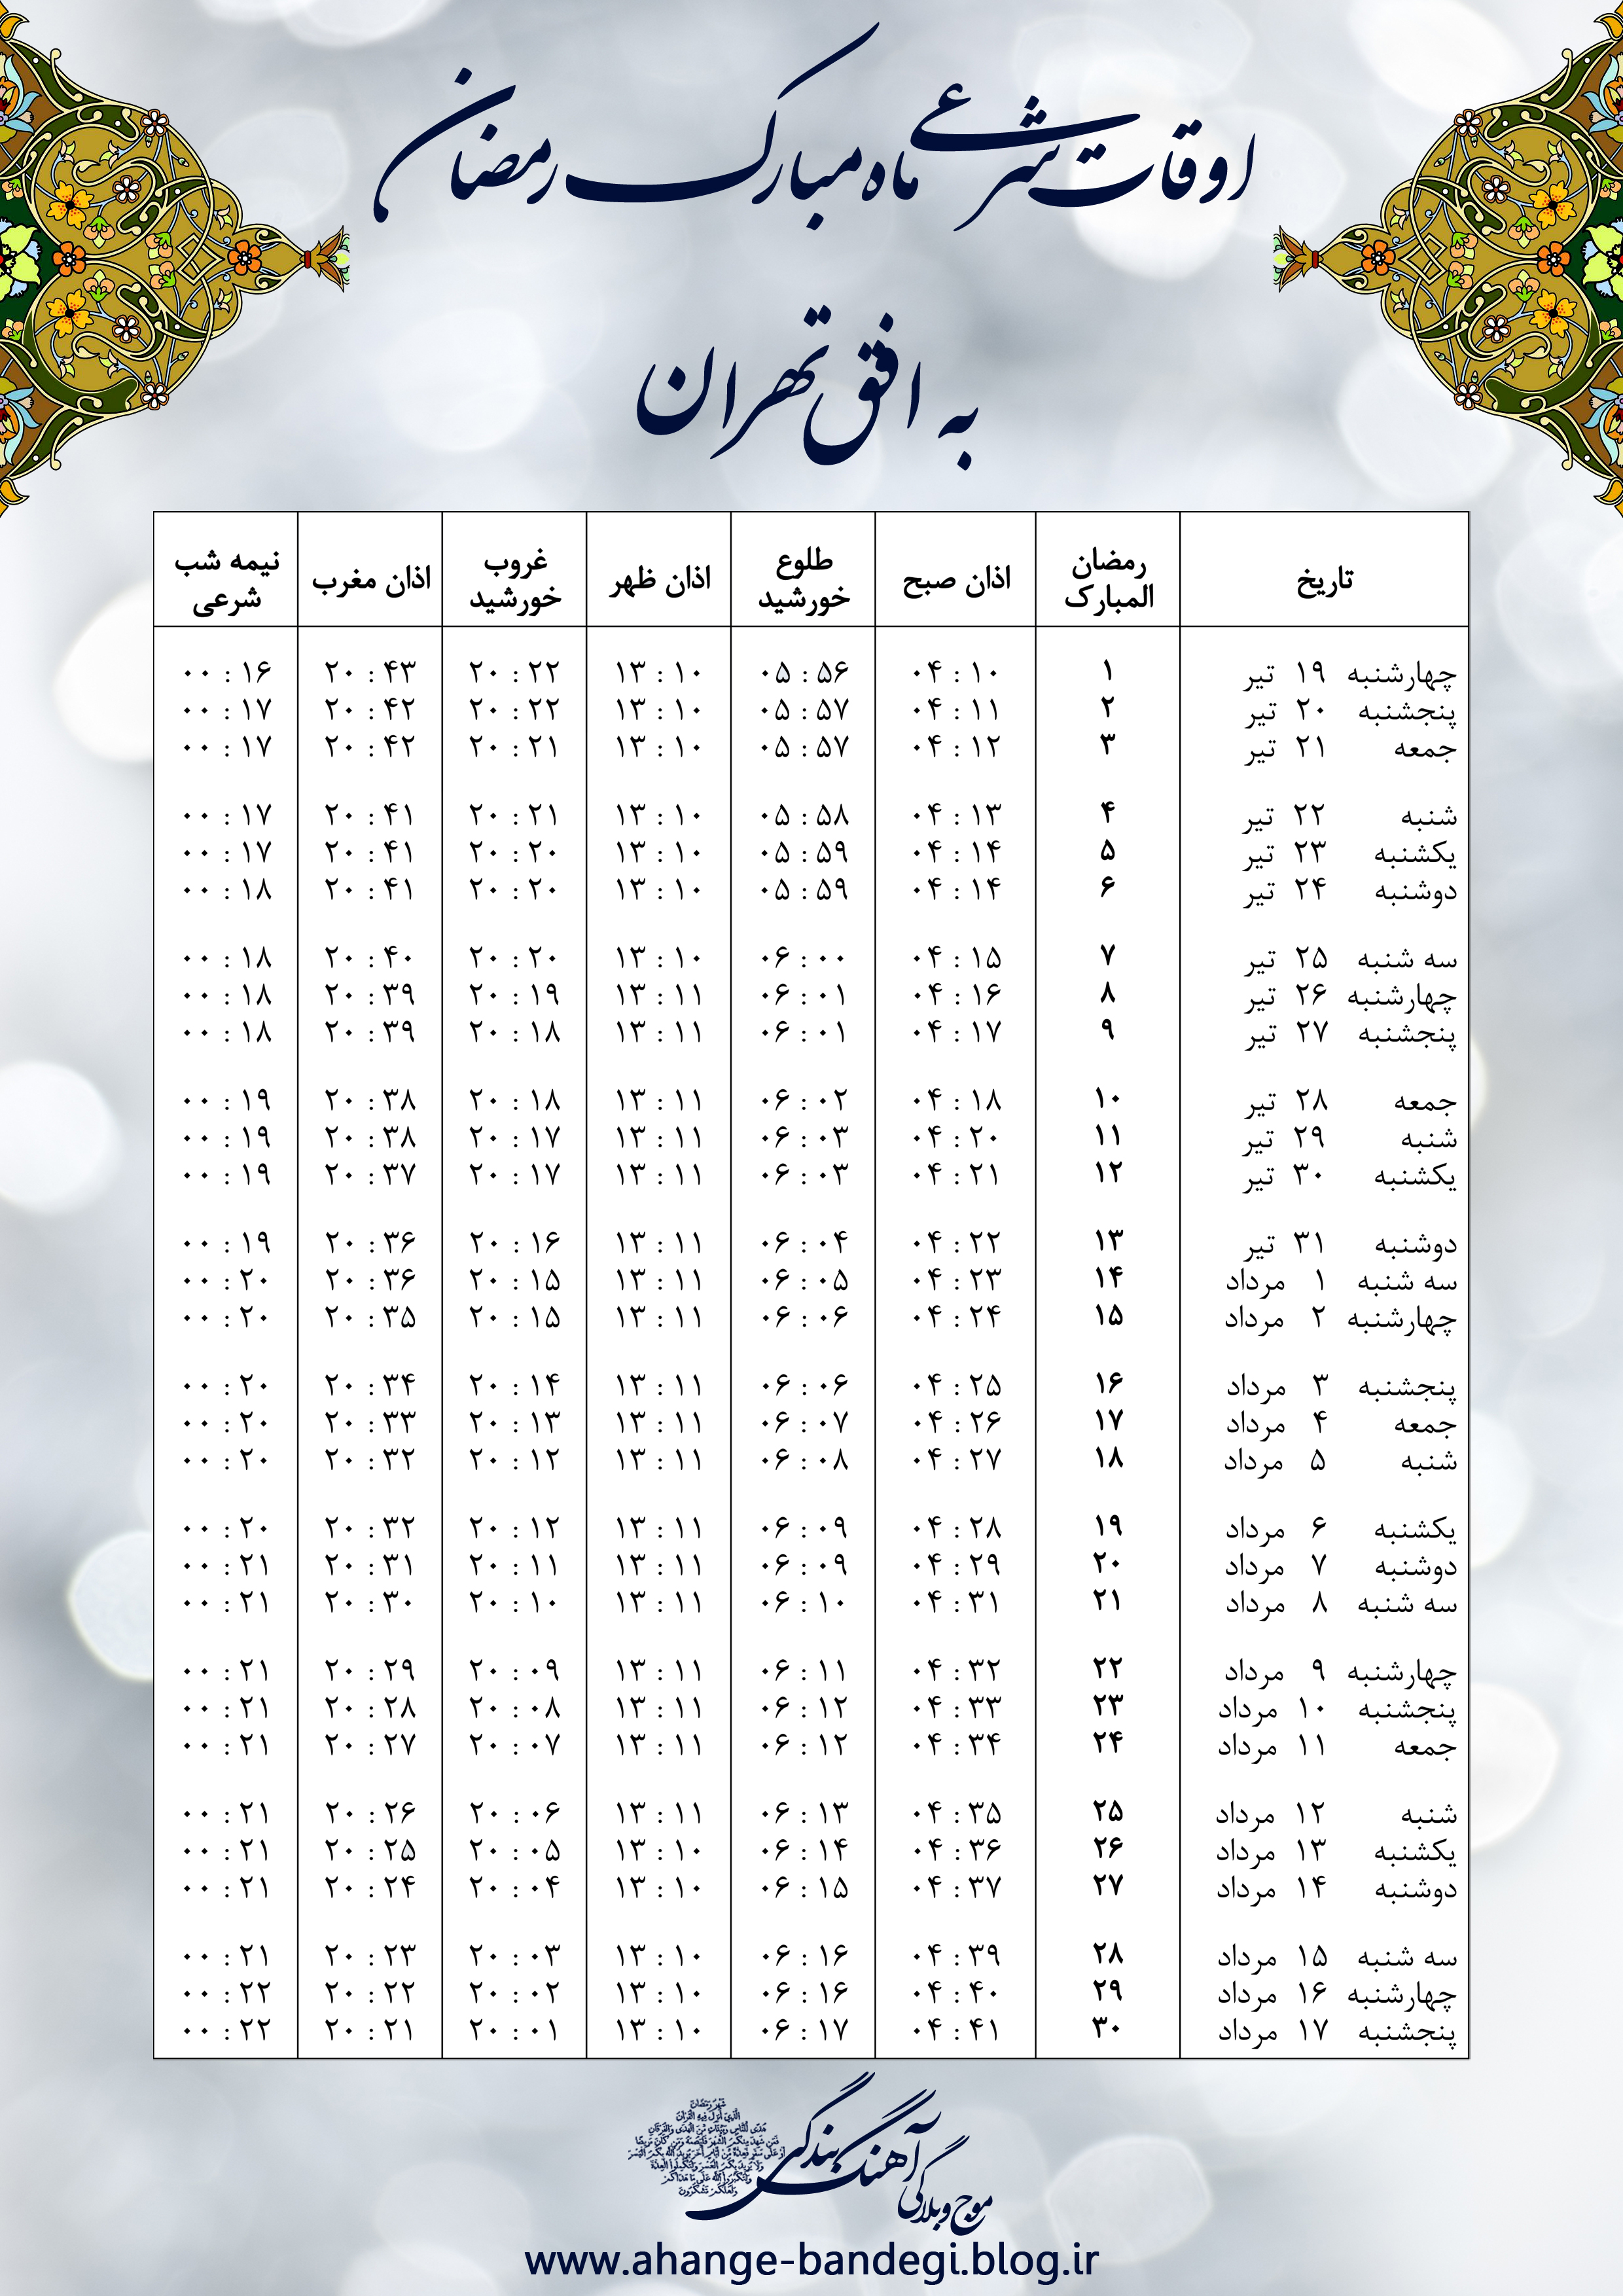 اوقات شرعی ماه مبارک رمضان
به افق تهران
تاریخ رمضان المبارک اذان صبح طلوع خورشید اذان ظهر غروب خورشید اذان مغرب نیمه شب شرعی
چهارشنبه ۱۹ تیر ۱ ۰۴:۱۰ ۰۵:۵۶ ۱۳:۱۰ ۲۰:۲۲ ۲۰:۴۳ ۰۰:۱۶
پنجشنبه ۲۰ تیر ۲ ۰۴:۱۱ ۰۵:۵۷ ۱۳:۱۰ ۲۰:۲۲ ۲۰:۴۲ ۰۰:۱۷
جمعه ۲۱ تیر ۳ ۰۴:۱۲ ۰۵:۵۷ ۱۳:۱۰ ۲۰:۲۱ ۲۰:۴۲ ۰۰:۱۷
شنبه ۲۲ تیر ۴ ۰۴:۱۳ ۰۵:۵۸ ۱۳:۱۰ ۲۰:۲۱ ۲۰:۴۱ ۰۰:۱۷
یکشنبه ۲۳ تیر ۵ ۰۴:۱۴ ۰۵:۵۹ ۱۳:۱۰ ۲۰:۲۰ ۲۰:۴۱ ۰۰:۱۷
دوشنبه ۲۴ تیر ۶ ۰۴:۱۴ ۰۵:۵۹ ۱۳:۱۰ ۲۰:۲۰ ۲۰:۴۱ ۰۰:۱۸
سه شنبه ۲۵ تیر ۷ ۰۴:۱۵ ۰۶:۰۰ ۱۳:۱۰ ۲۰:۲۰ ۲۰:۴۰ ۰۰:۱۸
چهارشنبه ۲۶ تیر ۸ ۰۴:۱۶ ۰۶:۰۱ ۱۳:۱۱ ۲۰:۱۹ ۲۰:۳۹ ۰۰:۱۸
پنجشنبه ۲۷ تیر ۹ ۰۴:۱۷ ۰۶:۰۱ ۱۳:۱۱ ۲۰:۱۸ ۲۰:۳۹ ۰۰:۱۸
جمعه ۲۸ تیر ۱۰ ۰۴:۱۸ ۰۶:۰۲ ۱۳:۱۱ ۲۰:۱۸ ۲۰:۳۸ ۰۰:۱۹
شنبه ۲۹ تیر ۱۱ ۰۴:۲۰ ۰۶:۰۳ ۱۳:۱۱ ۲۰:۱۷ ۲۰:۳۸ ۰۰:۱۹
یکشنبه ۳۰ تیر ۱۲ ۰۴:۲۱ ۰۶:۰۳ ۱۳:۱۱ ۲۰:۱۷ ۲۰:۳۷ ۰۰:۱۹
دوشنبه ۳۱ تیر ۱۳ ۰۴:۲۲ ۰۶:۰۴ ۱۳:۱۱ ۲۰:۱۶ ۲۰:۳۶ ۰۰:۱۹
سه شنبه ۱ مرداد ۱۴ ۰۴:۲۳ ۰۶:۰۵ ۱۳:۱۱ ۲۰:۱۵ ۲۰:۳۶ ۰۰:۲۰
چهارشنبه ۲ مرداد ۱۵ ۰۴:۲۴ ۰۶:۰۶ ۱۳:۱۱ ۲۰:۱۵ ۲۰:۳۵ ۰۰:۲۰
پنجشنبه ۳ مرداد ۱۶ ۰۴:۲۵ ۰۶:۰۶ ۱۳:۱۱ ۲۰:۱۴ ۲۰:۳۴ ۰۰:۲۰
جمعه ۴ مرداد ۱۷ ۰۴:۲۶ ۰۶:۰۷ ۱۳:۱۱ ۲۰:۱۳ ۲۰:۳۳ ۰۰:۲۰
شنبه ۵ مرداد ۱۸ ۰۴:۲۷ ۰۶:۰۸ ۱۳:۱۱ ۲۰:۱۲ ۲۰:۳۲ ۰۰:۲۰
یکشنبه ۶ مرداد ۱۹ ۰۴:۲۸ ۰۶:۰۹ ۱۳:۱۱ ۲۰:۱۲ ۲۰:۳۲ ۰۰:۲۰
دوشنبه ۷ مرداد ۲۰ ۰۴:۲۹ ۰۶:۰۹ ۱۳:۱۱ ۲۰:۱۱ ۲۰:۳۱ ۰۰:۲۱
سه شنبه ۸ مرداد ۲۱ ۰۴:۳۱ ۰۶:۱۰ ۱۳:۱۱ ۲۰:۱۰ ۲۰:۳۰ ۰۰:۲۱
چهارشنبه ۹ مرداد ۲۲ ۰۴:۳۲ ۰۶:۱۱ ۱۳:۱۱ ۲۰:۰۹ ۲۰:۲۹ ۰۰:۲۱
پنجشنبه ۱۰ مرداد ۲۳ ۰۴:۳۳ ۰۶:۱۲ ۱۳:۱۱ ۲۰:۰۸ ۲۰:۲۸ ۰۰:۲۱
جمعه ۱۱ مرداد ۲۴ ۰۴:۳۴ ۰۶:۱۲ ۱۳:۱۱ ۲۰:۰۷ ۲۰:۲۷ ۰۰:۲۱
شنبه ۱۲ مرداد ۲۵ ۰۴:۳۵ ۰۶:۱۳ ۱۳:۱۱ ۲۰:۰۶ ۲۰:۲۶ ۰۰:۲۱
یکشنبه ۱۳ مرداد ۲۶ ۰۴:۳۶ ۰۶:۱۴ ۱۳:۱۰ ۲۰:۰۵ ۲۰:۲۵ ۰۰:۲۱
دوشنبه ۱۴ مرداد ۲۷ ۰۴:۳۷ ۰۶:۱۵ ۱۳:۱۰ ۲۰:۰۴ ۲۰:۲۴ ۰۰:۲۱
سه شنبه ۱۵ مرداد ۲۸ ۰۴:۳۹ ۰۶:۱۶ ۱۳:۱۰ ۲۰:۰۳ ۲۰:۲۳ ۰۰:۲۱
چهارشنبه ۱۶ مرداد ۲۹ ۰۴:۴۰ ۰۶:۱۶ ۱۳:۱۰ ۲۰:۰۲ ۲۰:۲۲ ۰۰:۲۲
پنجشنبه ۱۷ مرداد ۳۰ ۰۴:۴۱ ۰۶:۱۷ ۱۳:۱۰ ۲۰:۰۱ ۲۰:۲۱ ۰۰:۲۲
موج وبلاگی آهنگ بندگی
www.ahange-bandegi.blog.ir